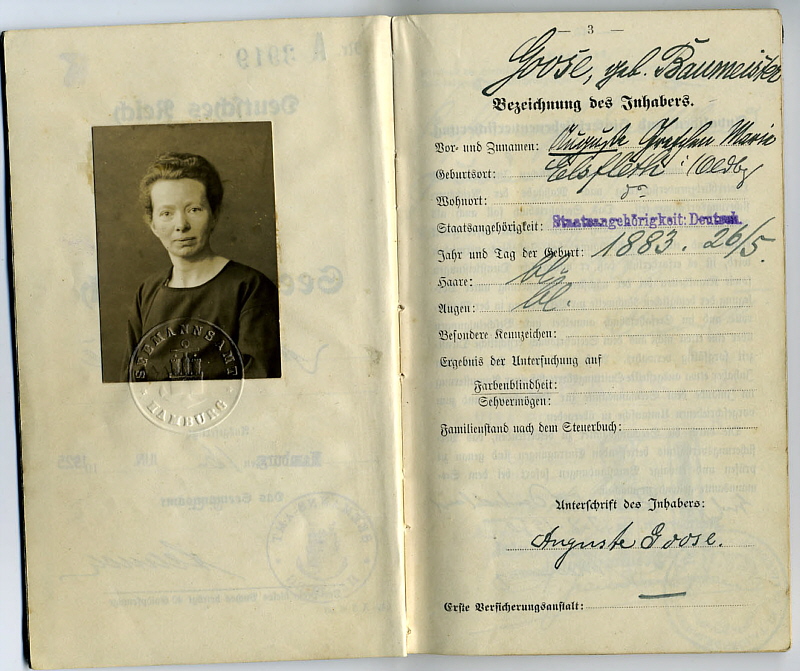 — 3 —
Goose, geb. Baumeister
Bezeichnung des Inhabers.
Vor- und Zunamen: Auguste Gretchen Marie
Geburtsort: Elsfleth i. Oldbg
Wohnort: do
Staatsangehörigkeit: Staatsangehörigkeit: Deutsch.
Jahr und Tag der Geburt: 1883. 26/5.
Haare: bl.
Augen: bl.
Besondere Kennzeichen:
Ergebnis der Untersuchung auf
Farbenblindheit:
Sehvermögen:
Familienstand nach dem Steuerbuch:
Unterschrift des Inhabers:
Auguste Goose.
Erste Versicherungsanstalt:
SEEMANNSAMT
HAMBURG